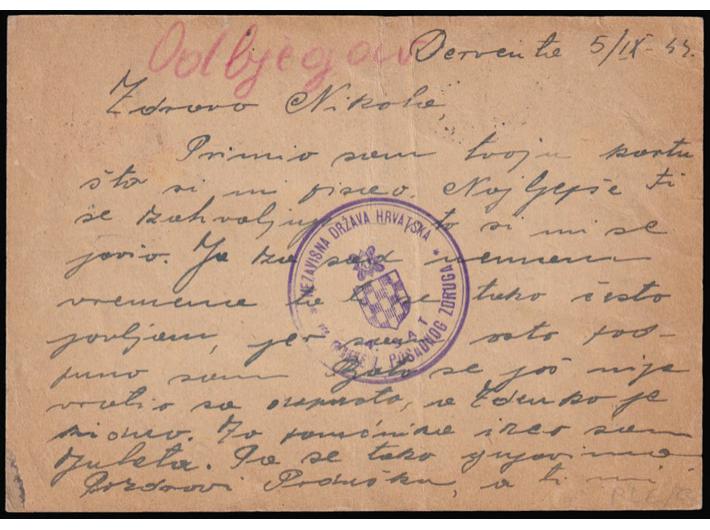 Odbjegao
Derventa 5/IX-44.
Zdravo Nikola,
Primio sam tvoju kartu
što si mi pisao. Najljepše ti
se zahvaljujem to si mi se
javio. Ja za sad nemam
vremena da ti se tako često
javljam, jer sam osto pot-
puno sam se još nije
vratio sa dopusta, a Zdenko je
Za pomoćnika uzeo sam
Da se tako
Pozdravi a ti mi
NEZAVISNA DRŽAVA HRVATSKA
POSADNOG ZDRUGA